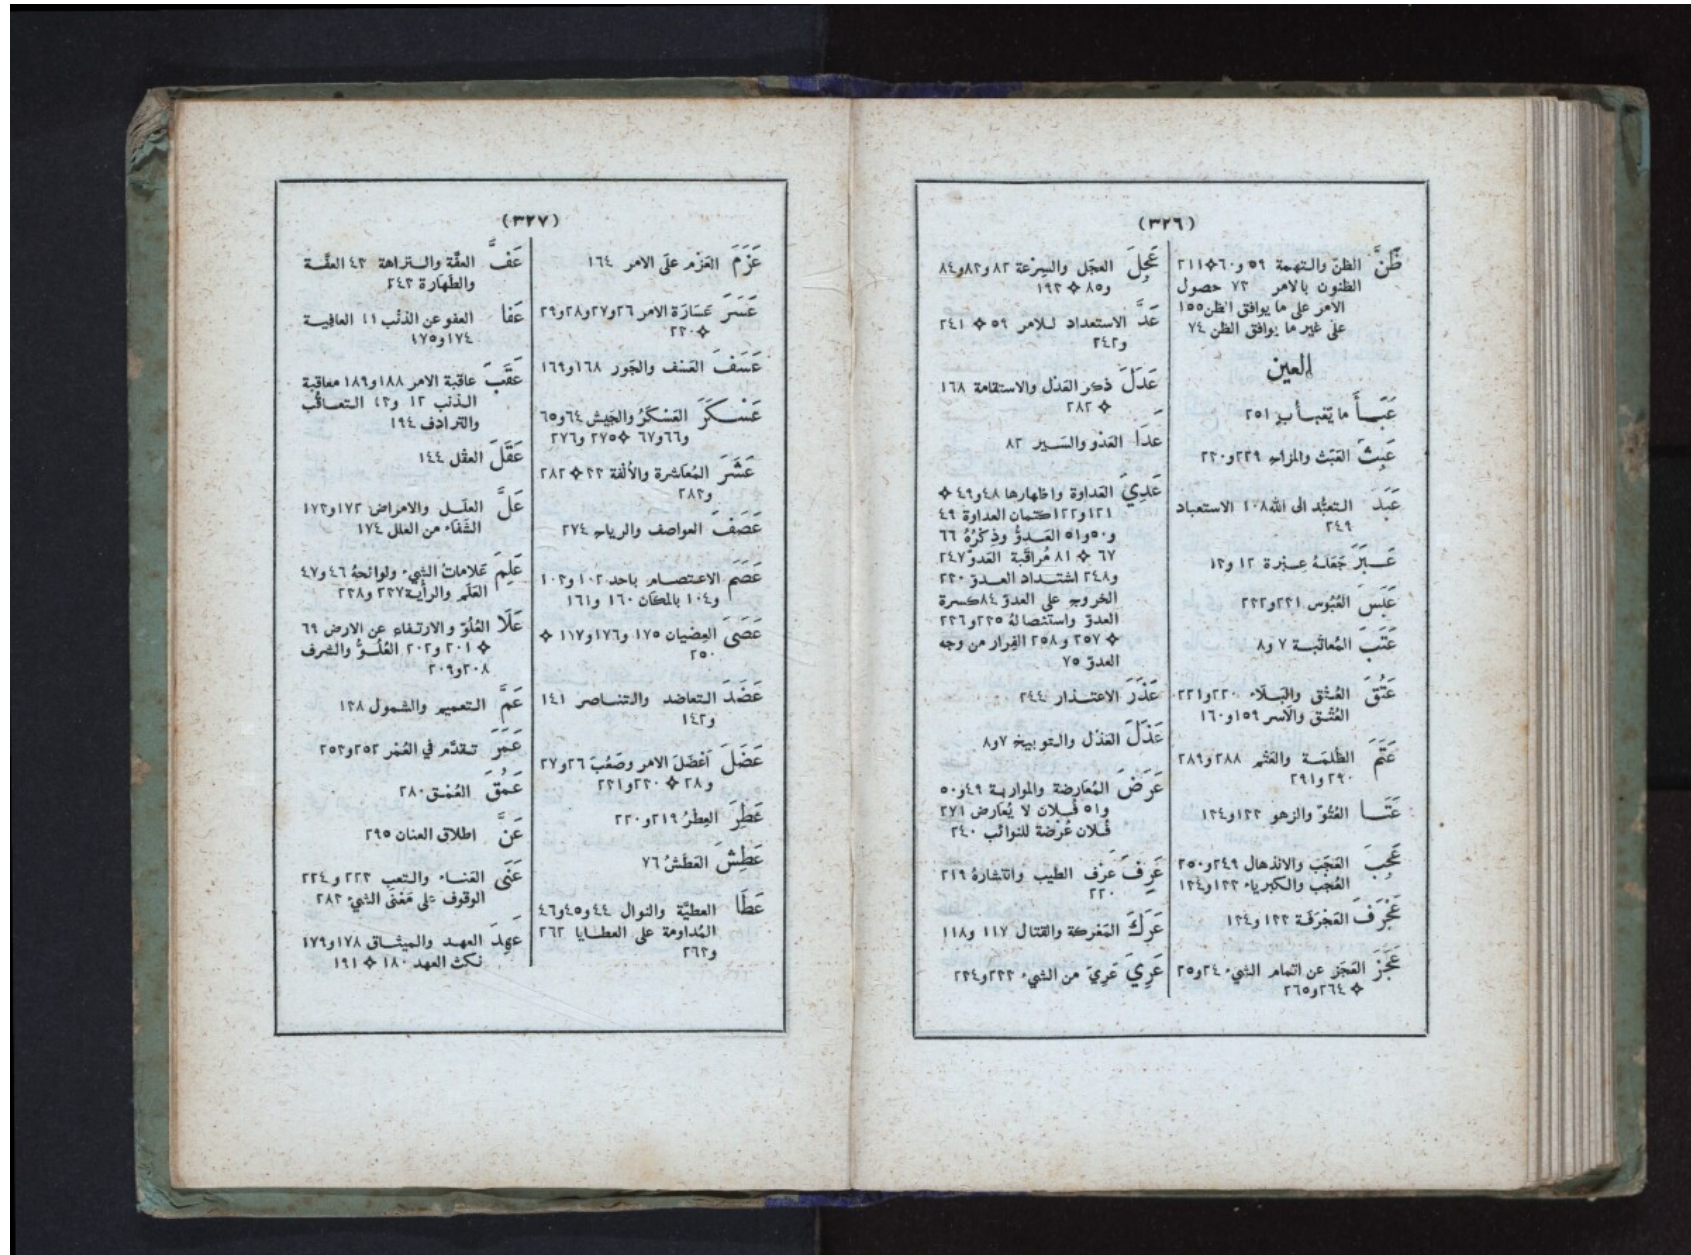 (٣٢٦)
ظَنَّ الظنّ والتهمة ٥٩ و٦٠ ✧ ٢١١
الظنون بالامر ٧٣ حصول
الامر على ما يوافق الظن ١٥٥
على غير ما يوافق الظن ٧٤
العين
عَبَأَ ما يَعْبأ بهِ ٢٥١
عَبِثَ العَبَث والمزاح ٢٢٩ و٢٣٠
عَبَدَ التعبُّد الى الله ٢٠٨ الاستعباد
٢٤٩
عَبَّرَ جَعَلهُ عِبْرة ١٢ و١٣
عَبَسَ العُبُوس ٢٣١ و٢٣٢
عَتَبَ المُعاتَبة ٧ و٨
عَتُقَ العُتْق والبِلَاء ٢٢٠ و٢٢١
العُتْق والأسر ١٥٩ و١٦٠
عَتَمَ الظُلمَة والعَتْم ٢٨٨ و٢٨٩
٢٩٠ و٢٩١
عَتَا العُتُوّ والزهو ١٣٣ و١٣٤
عَجِبَ العَجَب والانذهال ٢٤٩ و٢٥٠
العُجب والكبرياء ١٣٣ و١٣٤
عَجْرَفَ العَجْرَفَة ١٣٣ و١٣٤
عَجَزَ العَجَز عن اتمام الشيء ٢٤ و٢٥
✧ ٢٦٤ و٢٦٥
عَجِلَ العجَل والسِرْعة ٨٢ و٨٣ و٨٤
و٨٥ ✧ ١٩٣
عَدَّ الاستعداد للامر ٥٩ ✧ ٢٤١
و٢٤٢
عَدَلَ ذكر العَدْل والاستقامة ١٦٨
✧ ٢٨٢
عدَا العَدْو والسَير ٨٢
عَدِيَ العَداوة واظهارها ٤٨ و٤٩ ✧
١٢١ و١٢٢ كتمان العداوة ٤٩
و٥٠ و٥١ العَدوُّ وذِكْرُهُ ٦٦
٦٧ ✧ ٨١ مُراقَبة العَدوّ ٢٤٧
و٢٤٨ اشتداد العدوّ ٢٣٠
الخروج على العدوّ ٨٤ كسرة
العدوّ واستئصالهُ ٢٣٥ و٢٣٦
✧ ٢٥٧ و٢٥٨ الفِرار من وجه
العدوّ ٧٥
عَذَرَ الاعتذار ٢٤٤
عَذَلَ العَذْل والتوبيخ ٧ و٨
عَرَضَ المُعَارضة والمواربة ٤٩ و٥٠
و٥١ فُلان لا يُعارض ٢٧١
فُلان عُرْضة للنوائب ٢٤٠
عَرِفَ عَرْف الطيب وانتشارهُ ٢١٩
٢٢٠
عَرَكَ المَعْركة والقتال ١١٧ و١١٨
عَرِيَ عَرِيَ من الشيء ٢٣٣ و٢٣٤
(٣٢٧)
عَزَمَ العَزْم على الامر ١٦٤
عَسَرَ عَسَارَة الامر ٢٦ و٢٧ و٢٨ و٢٩
✧ ٢٣٠
عَسَفَ العَسْف والجَور ١٦٨ و١٦٩
عَسْكَرَ العَسْكَرُ والجَيش ٦٤ و٦٥
و٦٦ و٦٧ ✧ ٢٧٥ و٢٧٦
عَشَرَ المُعَاشرة والأُلفة ٣٣ ✧ ٢٨٢
و٢٨٣
عَصَفَ العواصف والرياح ٢٧٤
عَصَمَ الاعتصام باحد ١٠٢ و١٠٣
و١٠٤ بالمكان ١٦٠ و١٦١
عَصَى العِصْيان ١٧٥ و١٧٦ و١١٧ ✧
٢٥٠
عَضَدَ التعاضد والتناصر ١٤١
و١٤٢
عَضَلَ أعْضَلَ الامر وصَعُبَ ٢٦ و٢٧
و٢٨ ✧ ٢٣٠ و٢٣١
عَطِرَ العِطرُ ٢١٩ و٢٢٠
عَطِشَ العَطَشُ ٧٦
عَطَا العطيَّة والنوال ٤٤ و٤٥ و٤٦
المُداومة على العطايا ٢٦٢
و٢٦٣
عَفَّ العفَّة والنزاهة ٤٣ العفَّة
والطهارة ٢٤٣
عَفَا العفو عن الذنْب ١١ العافية
١٧٤ و١٧٥
عَقَبَ عاقبة الامر ١٨٨ و١٨٩ معاقبة
الذنب ١٢ و١٣ التعاقُب
والترادف ١٩٤
عَقَلَ العقْل ١٤٤
عَلَّ العلَل والامراض ١٧٢ و١٧٣
الشَّفَاء من العلل ١٧٤
عَلِمَ عَلاماتُ الشيء ولوائحهُ ٤٦ و٤٧
العَلَم والراية ٢٣٧ و٢٣٨
عَلَا العُلُوّ والارتفاء عن الارض ٦٩
✧ ٢٠١ و٢٠٢ العُلُوُّ والشرف
٢٠٨ و٢٠٩
عَمَّ التعميم والشمول ١٣٨
عَمَرَ تقدَّم في العُمْر ٢٥٢ و٢٥٣
عَمُقَ العُمْق ٢٨٠
عَنَّ اطلاق العنان ٢٩٥
عَنَى العَناء والتعب ٢٢٣ و٢٢٤
الوقوف على مَعْنَى الشيء ٢٨٣
عَهِدَ العهد والميثاق ١٧٨ و١٧٩
نكث العهد ١٨٠ ✧ ١٩١